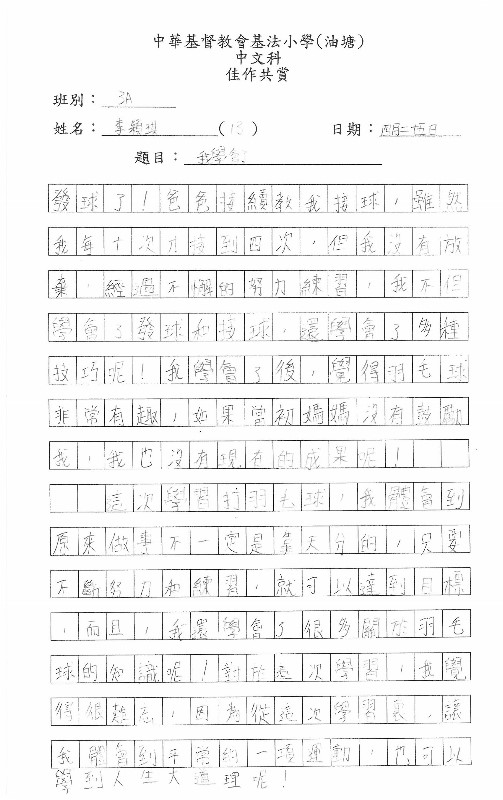 中華基督教會基法小學(油塘)
中文科
佳作共賞
班別： 3A
姓名： 李穎 (13) 日期： 四月二十五日
題目： 我學會了
發球了！爸爸接續教我接球，雖然
我每十次才接到四次，但我沒有放
棄，經過不懈的努力練習，我不但
學會了發球和接球，還學會了多種
技巧呢！我學會了後，覺得羽毛球
非常有趣，如果當初媽媽沒有鼓勵
我，我也沒有現在的成果呢！
這次學習打羽毛球，我體會到
原來做事不一定是靠天分的，只要
不斷努力和練習，就可以達到目標
，而且，我還學會了很多關於羽毛
球的知識呢！對於這次學習，我覺
得很難忘，因為從這次學習裏，讓
我體會到平常的一項運動，也可以
學到人生大道理呢！